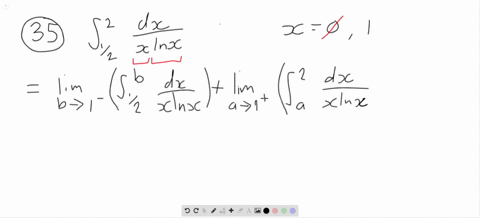 35 ∫_{1/2}^{2} dx/(x ln x) x = 0, 1
= lim_{b→1⁻} (∫_{1/2}^{b} dx/(x ln x)) + lim_{a→1⁺} (∫_{a}^{2} dx/(x ln x)